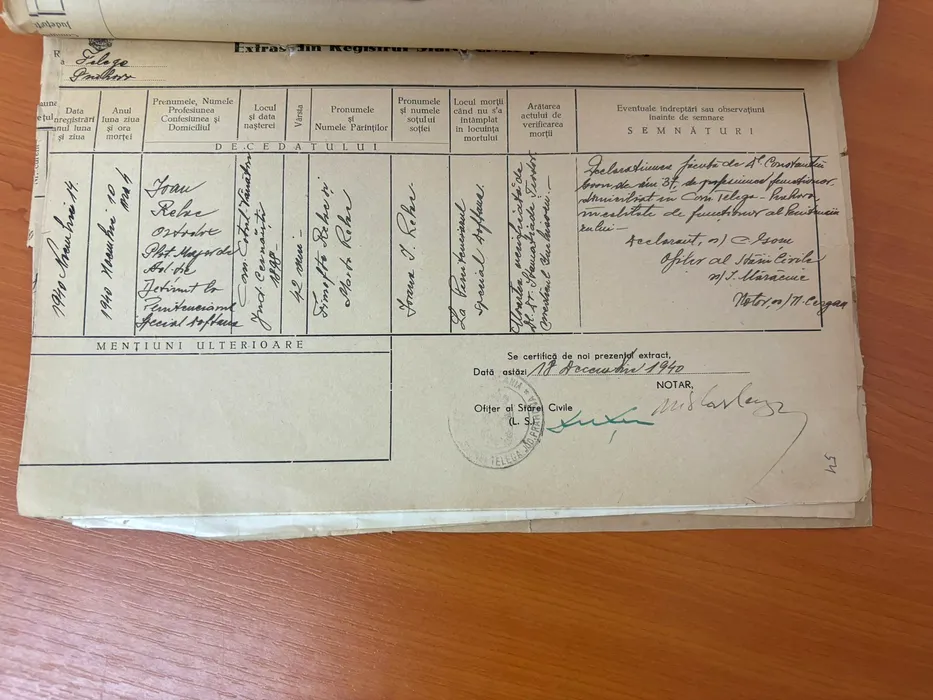 Județul
Extras din Registrul Stării Civile p
R
a
Telega
Prahova
Data
înregistrării
anul luna
și ziua
Anul
luna ziua
și ora
morței
Prenumele, Numele
Profesiunea
Confesiunea și
Domiciliul
Locul
și data
nașterei
Vârsta
Pronumele
și
Numele Părinților
Pronumele
și numele
soțului
soției
Locul morții
când nu s'a
întâmplat
în locuința
mortului
Arătarea
actului de
verificarea
morții
Eventuale îndreptări sau observațiuni
înainte de semnare
SEMNĂTURI
DECEDATULUI
1940 Noembrie 14
1940 Noembrie 10
ora 6
Ioan
Reluc
Ortodox
Plot. Major de
Detinut la
Penitenciarul
Special Doftana
Com.
Jud. Cernăuți
1898
42 ani
Timofte Reluc și
Maria Reluc
Ioana I. Reluc
La Penitenciarul
Special Doftana
Moartea verificată de
Dl. Dr.
medicul
Declarațiunea făcută de Dl. Constantin
de ani 37, de profesiune funcționar
domiciliat în Com. Telega - Prahova,
în calitate de funcționar al Peniten-
ciarului -
Declarant, ss/
Ofițer al Stării Civile
ss/ I. Mărăcine
Notar, ss/ N.
MENȚIUNI ULTERIOARE
Se certifică de noi prezentul extract,
Data astăzi 18 Decembrie 1940
NOTAR,
Ofițer al Stărei Civile
(L. S.)
TELEGA JUD. PRAHOVA
54